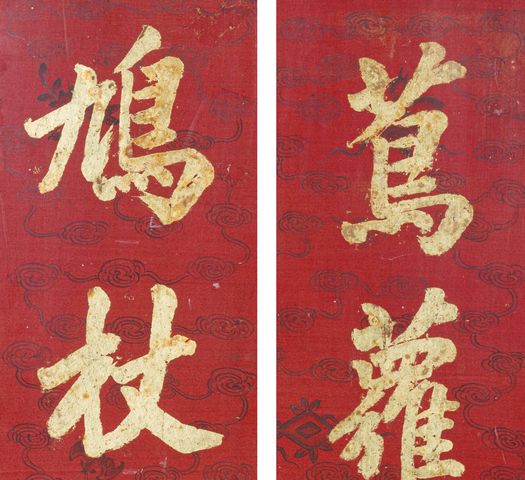 蔦蘿
鳩杖